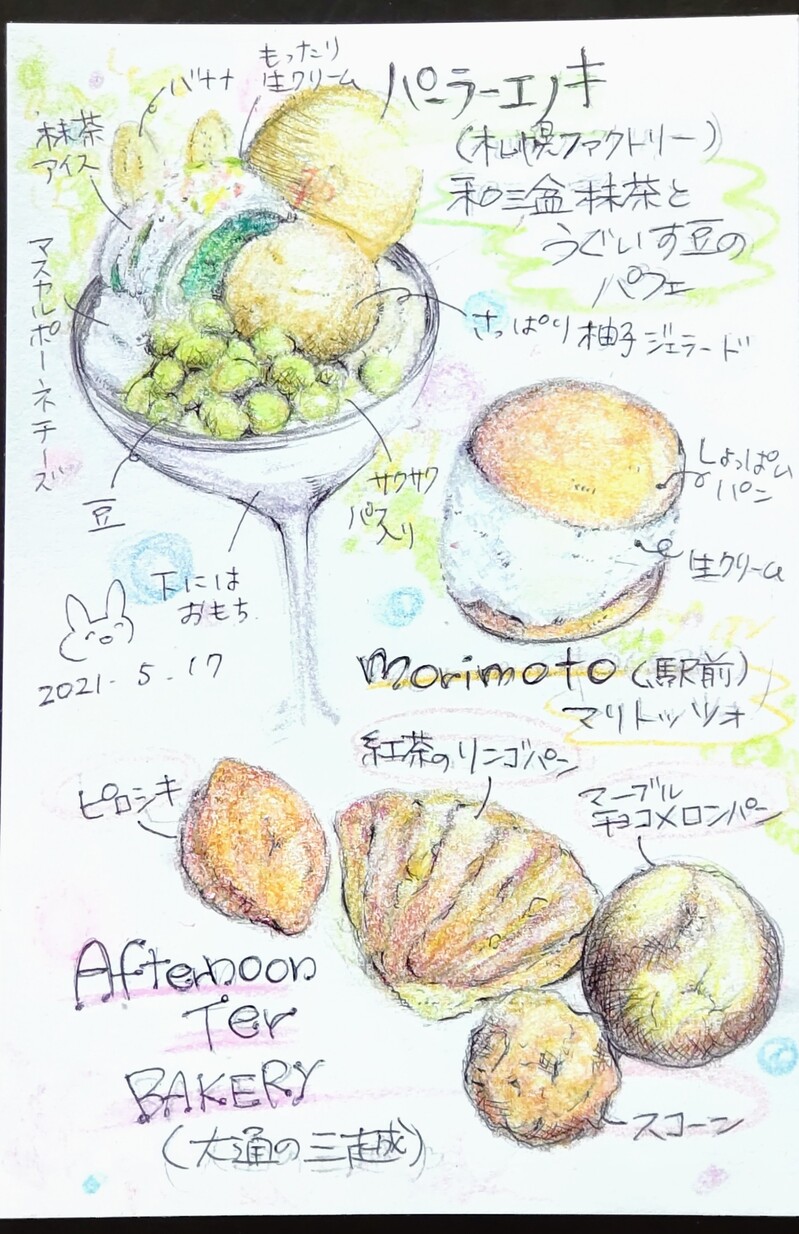 パーラーエノキ
(札幌ファクトリー)
和三盆抹茶と
うぐいす豆の
パフェ
もったり
生クリーム
バナナ
抹茶
アイス
マスカルポーネチーズ
さっぱり柚子ジェラード
豆
サクサク
パス入り
下には
おもち
2021.5.17
しょっぱム
パン
生クリーム
Morimoto(駅前)
マリトッツォ
ピロシキ
紅茶のリンゴパン
マーブル
チョコメロンパン
スコーン
Afternoon
Ter
BAKERY
(大通の三越)